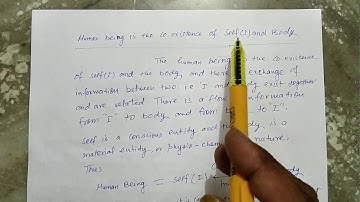 Human being is the co existence of Self(I) and Body
The human being the co existence
of self(I) and the body, and there exchange of
information between two i.e I and body exist together
and are related There is a flow information
from "I" to body and from to "I".
Self is a conscious entity and the body is a
material entity, or physio-chem nature.
Thus
Human Being = Self(I)